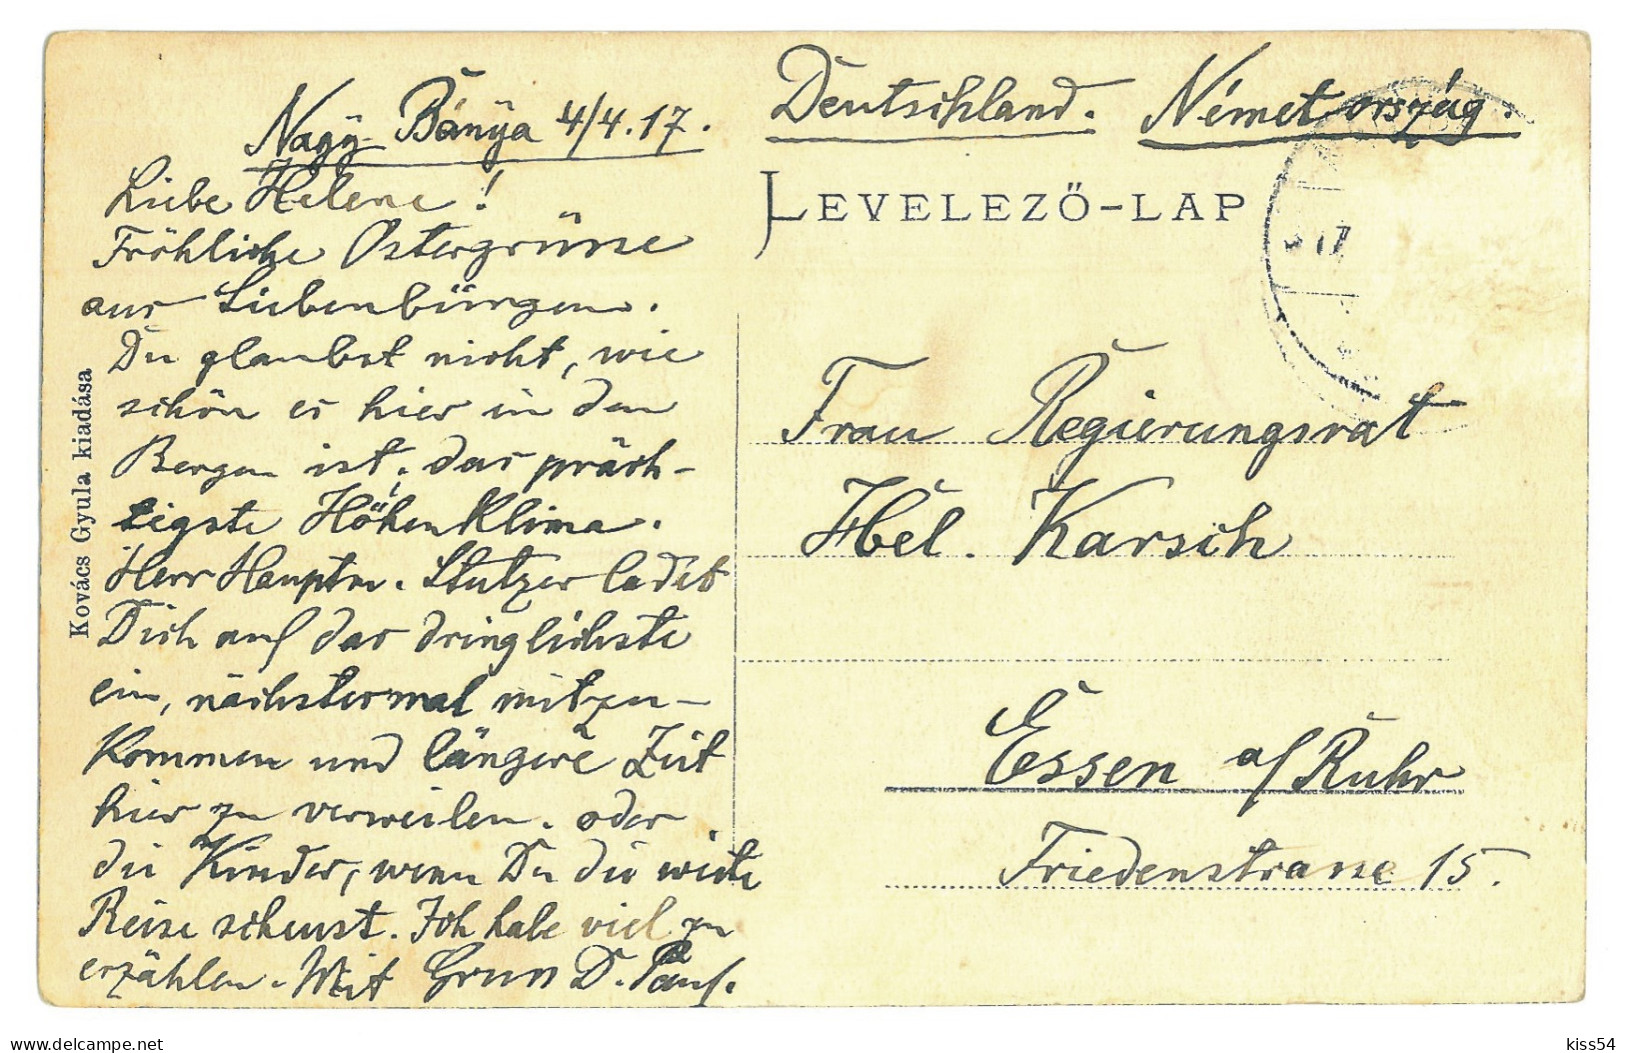 Nagÿ-Bánÿa 4/4.17.
Liebe Helene!
Fröhliche Ostergrüsse
aus Siebenbürgen.
Du glaubst nicht, wie
schön es hier in den
Bergen ist, das präch-
tigste Höhenklima.
Herr Hauptm. Stutzer ladet
Dich auf das dringlichste
ein, nächstermal mitzu-
kommen und längere Zeit
hier zu verweilen. oder
die Kinder, wenn Du die weite
Reise scheust. Ich habe viel zu
erzählen. Mit Gruss D. Paul.
Kovács Gyula kiadása
Deutschland. Németország.
LEVELEZŐ-LAP
17
Frau Regierungsrat
Hel. Karsch
Essen a/Ruhr
Friedenstrasse 15.
delcampe.net
kiss54